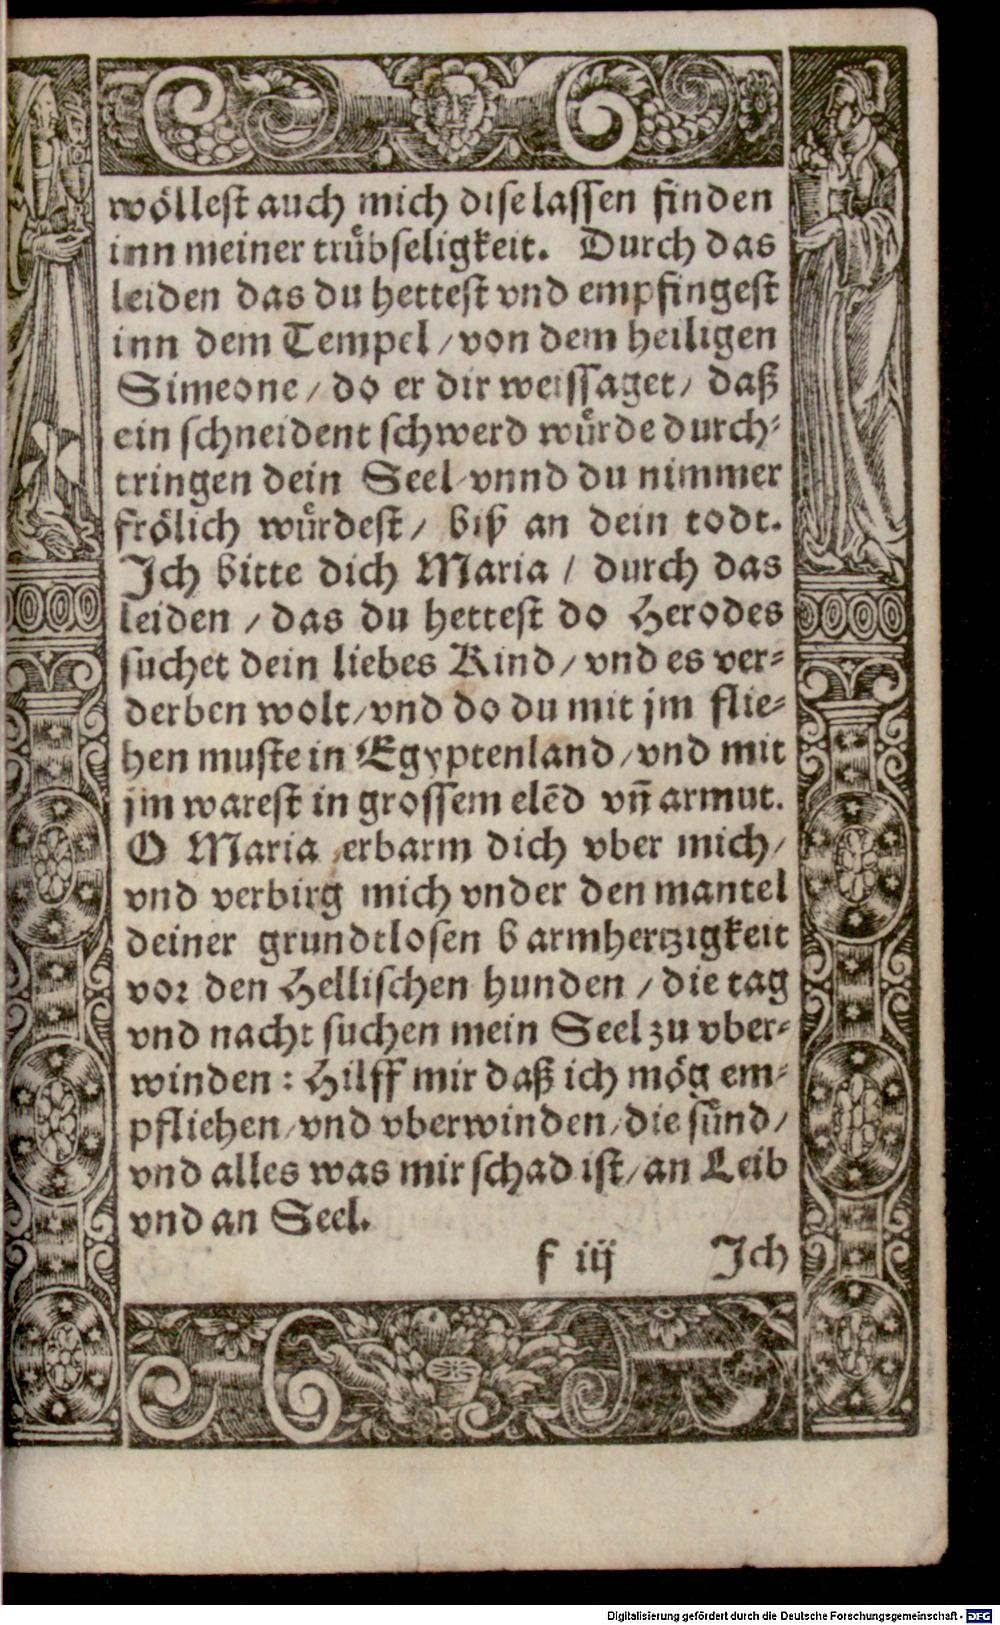 wöllest auch mich dise lassen finden
inn meiner trübseligkeit. Durch das
leiden das du hettest vnd empfingest
inn dem Tempel / von dem heiligen
Simeone / do er dir weissaget / daß
ein schneident schwerd würde durch⸗
tringen dein Seel / vnnd du nimmer
frölich würdest / biß an dein todt.
Ich bitte dich Maria / durch das
leiden / das du hettest do Herodes
suchet dein liebes Kind / vnd es ver⸗
derben wolt / vnd do du mit jm flie⸗
hen muste in Egyptenland / vnd mit
jm warest in grossem elēd vñ armut.
O Maria erbarm dich vber mich /
vnd verbirg mich vnder den mantel
deiner grundtlosen barmhertzigkeit
vor den Hellischen hunden / die tag
vnd nacht suchen mein Seel zu vber⸗
winden : Hilff mir daß ich mög em⸗
pfliehen / vnd vberwinden / die sünd /
vnd alles was mir schad ist / an Leib
vnd an Seel.
f iij Ich
Digitalisierung gefördert durch die Deutsche Forschungsgemeinschaft - DFG